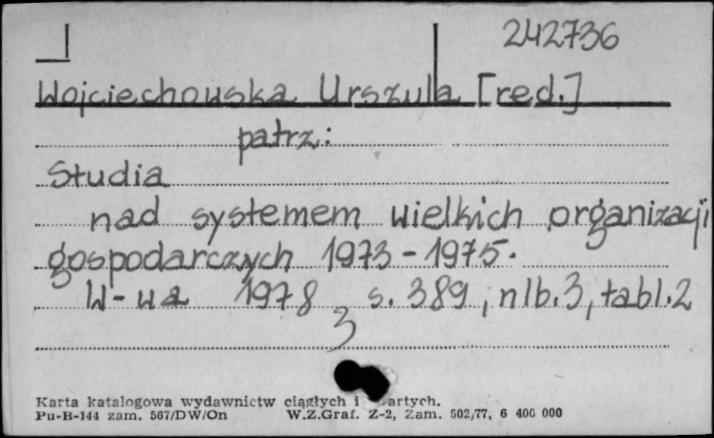 242736
Wojciechowska Urszula [red.]
patrz:
Studia
nad systemem wielkich organizacji
gospodarczych 1973-1975.
W-wa 1978 s. 389, nlb. 3, tabl. 2
3
Karta katalogowa wydawnictw ciągłych i artych.
Pu-B-144 zam. 567/DW/On W.Z.Graf. Z-2, Zam. 502/77, 6 400 000